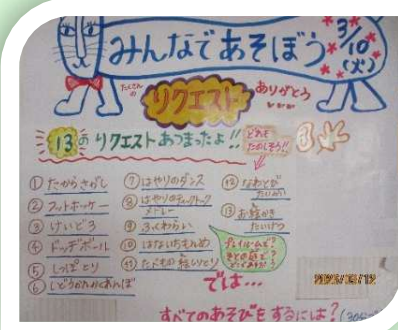 みんなであそぼう
3/10
(火)
たくさんの
リクエスト
ありがとう
13のリクエストあつまったよ!!
どれも
たのしそう!!
①たからさがし
②フットホッケー
③けいどろ
④ドッヂボール
⑤しっぽとり
⑥
⑦はやりのダンス
⑧はやりのティックトック
メドレー
⑨ふくわらい
⑩はないちもんめ
⑪たべもの絵しりとり
⑫なわとび
⑬お絵かき
たいけつ
では...
すべてのあそびをするには?